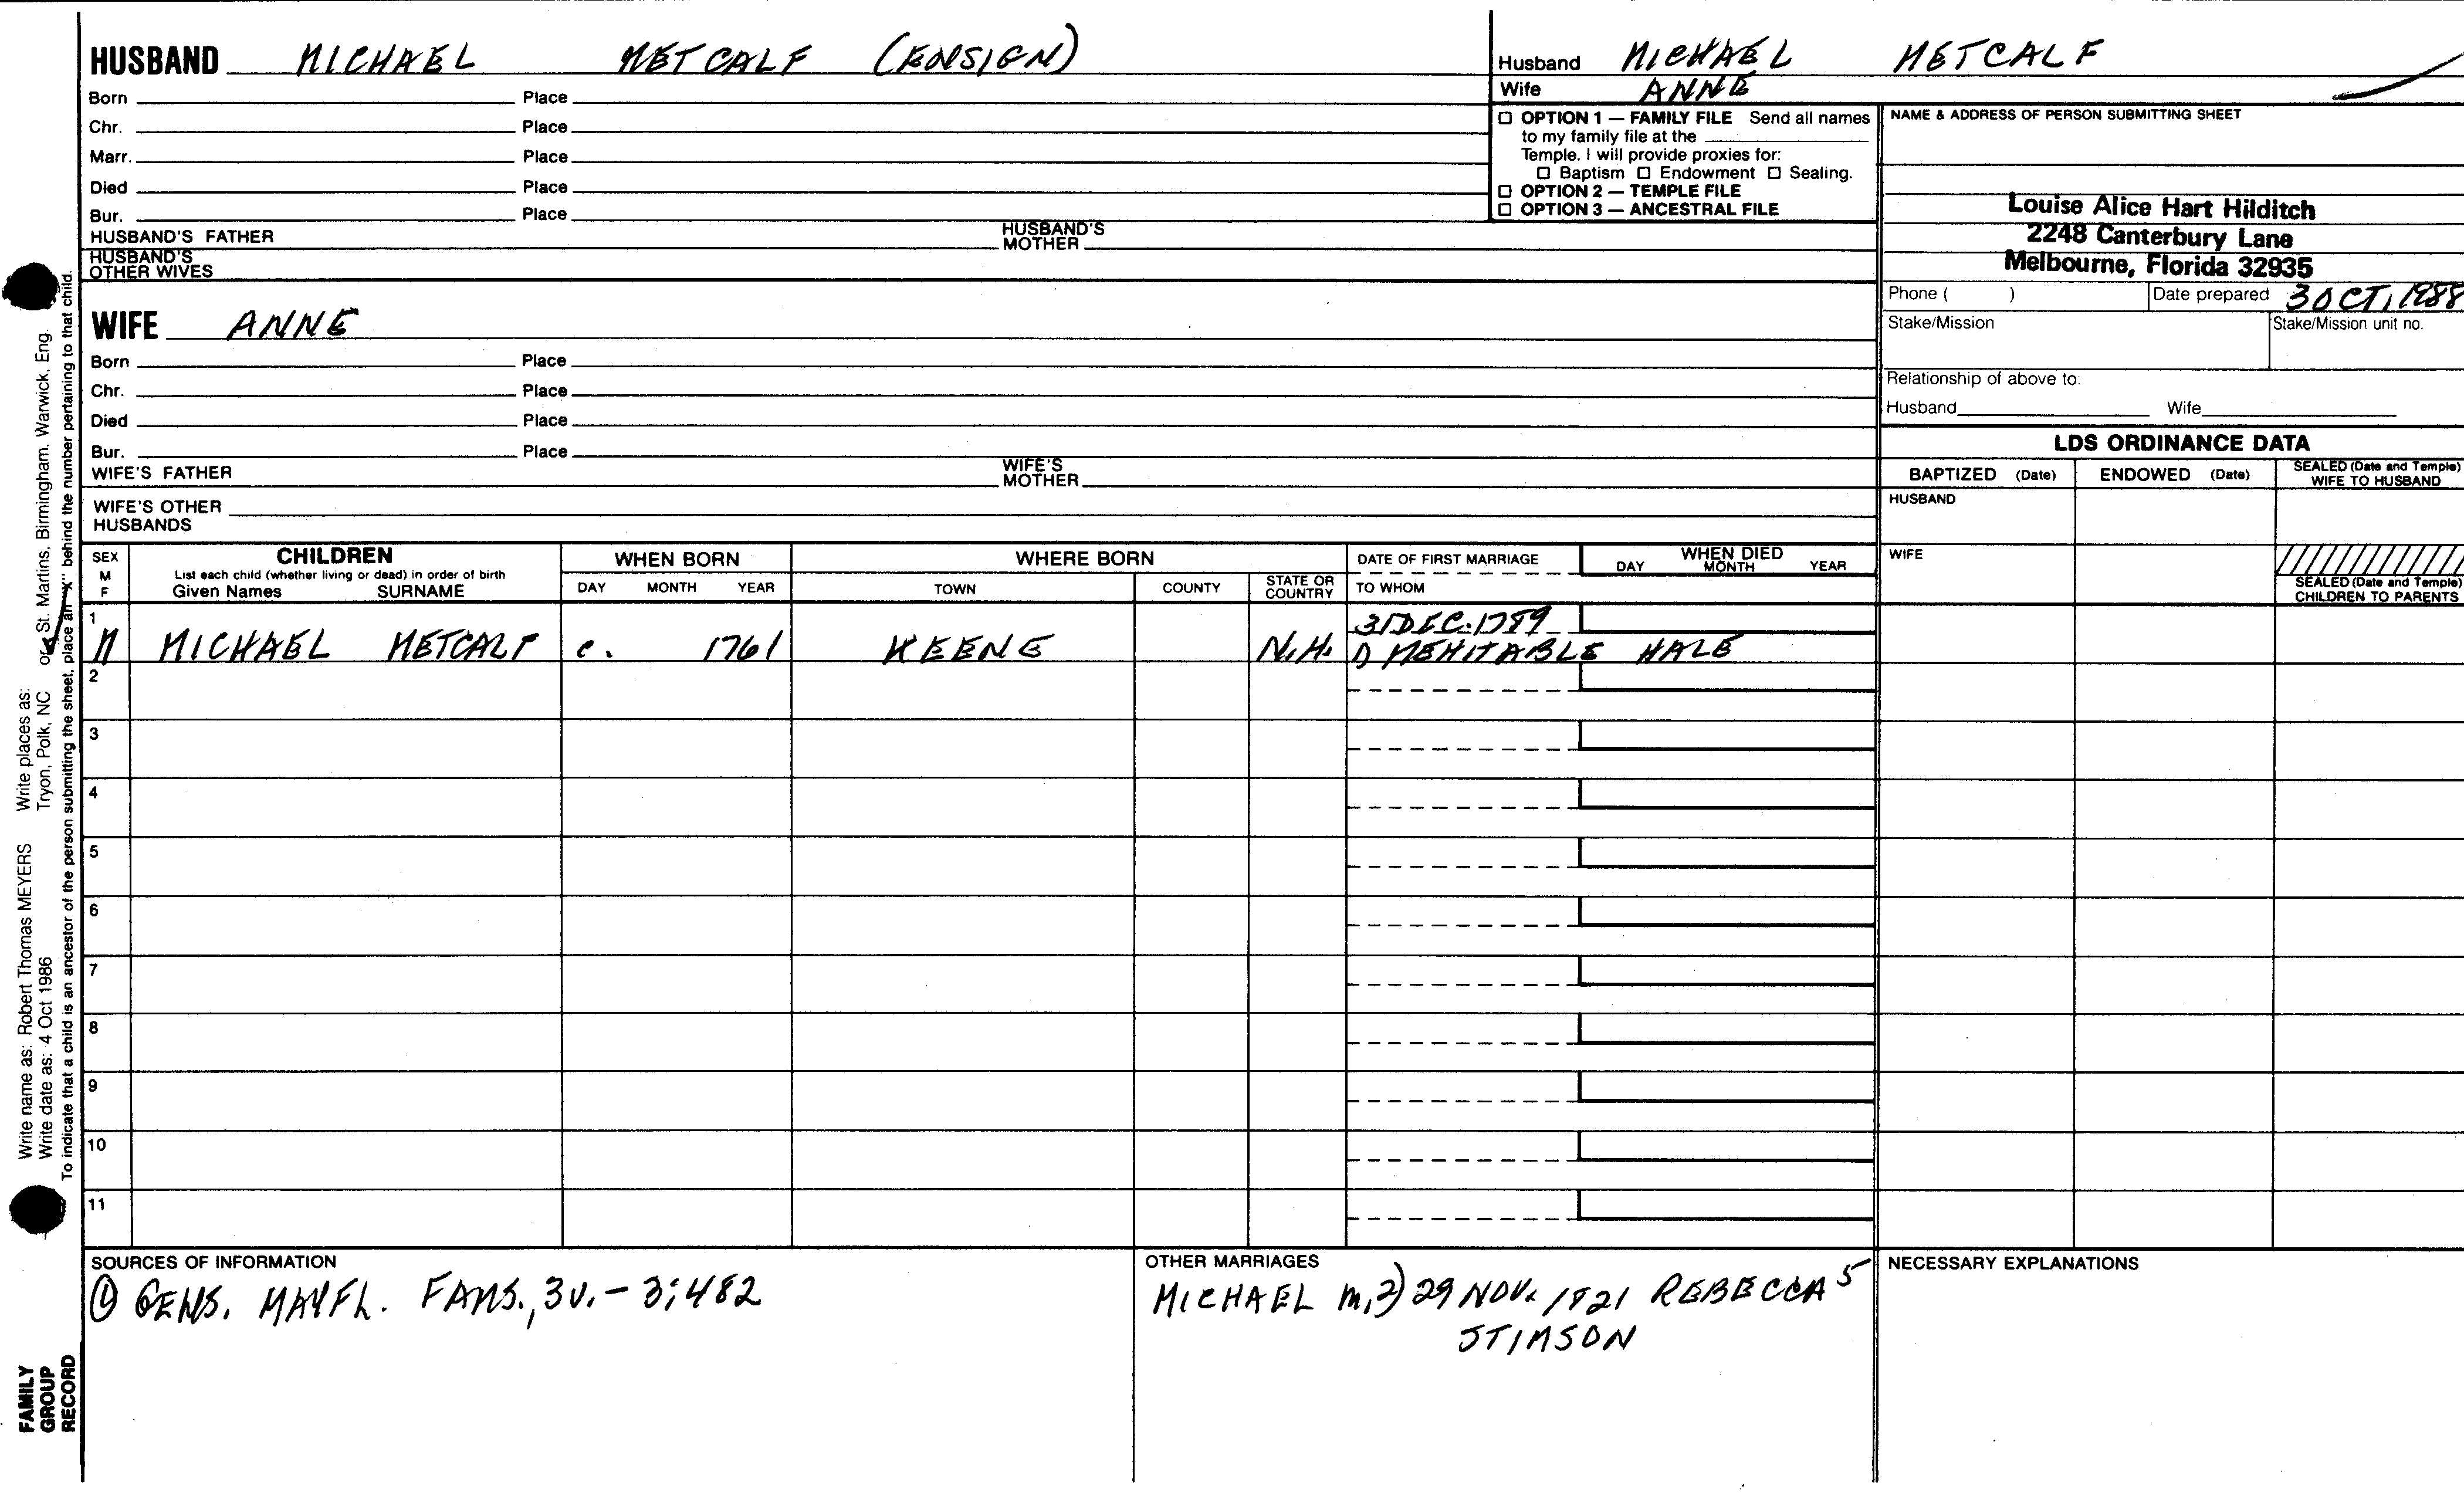 HUSBAND MICHAEL METCALF (ENSIGN)
Born Place
Chr. Place
Marr. Place
Died Place
Bur. Place
HUSBAND'S FATHER HUSBAND'S MOTHER
HUSBAND'S OTHER WIVES
WIFE ANNE
Born Place
Chr. Place
Died Place
Bur. Place
WIFE'S FATHER WIFE'S MOTHER
WIFE'S OTHER HUSBANDS
Husband MICHAEL METCALF
Wife ANNE
☐ OPTION 1 — FAMILY FILE Send all names
to my family file at the
Temple. I will provide proxies for:
☐ Baptism ☐ Endowment ☐ Sealing.
☐ OPTION 2 — TEMPLE FILE
☐ OPTION 3 — ANCESTRAL FILE
NAME & ADDRESS OF PERSON SUBMITTING SHEET
Louise Alice Hart Hilditch
2248 Canterbury Lane
Melbourne, Florida 32935
Phone ( ) Date prepared 3 OCT, 1988
Stake/Mission Stake/Mission unit no.
Relationship of above to:
Husband Wife
LDS ORDINANCE DATA
BAPTIZED (Date) ENDOWED (Date) SEALED (Date and Temple) WIFE TO HUSBAND
HUSBAND
WIFE
SEALED (Date and Temple)
CHILDREN TO PARENTS
SEX M F
CHILDREN
List each child (whether living or dead) in order of birth
Given Names SURNAME
WHEN BORN
DAY MONTH YEAR
WHERE BORN
TOWN COUNTY STATE OR COUNTRY
DATE OF FIRST MARRIAGE
TO WHOM
WHEN DIED
DAY MONTH YEAR
1
31 DEC. 1789
M MICHAEL METCALF c. 1761 KEENE N.H. 1) MEHITABLE HALE
2
3
4
5
6
7
8
9
10
11
SOURCES OF INFORMATION
① GENS. MAYFL. FAMS., 3v. – 3; 482
OTHER MARRIAGES
MICHAEL m, 2) 29 NOV. 1821 REBECCA 5
STIMSON
NECESSARY EXPLANATIONS
Write name as: Robert Thomas MEYERS Write places as:
Write date as: 4 Oct 1986 Tryon, Polk, NC or St. Martins, Birmingham, Warwick, Eng.
To indicate that a child is an ancestor of the person submitting the sheet, place an "X" behind the number pertaining to that child.
FAMILY
GROUP
RECORD